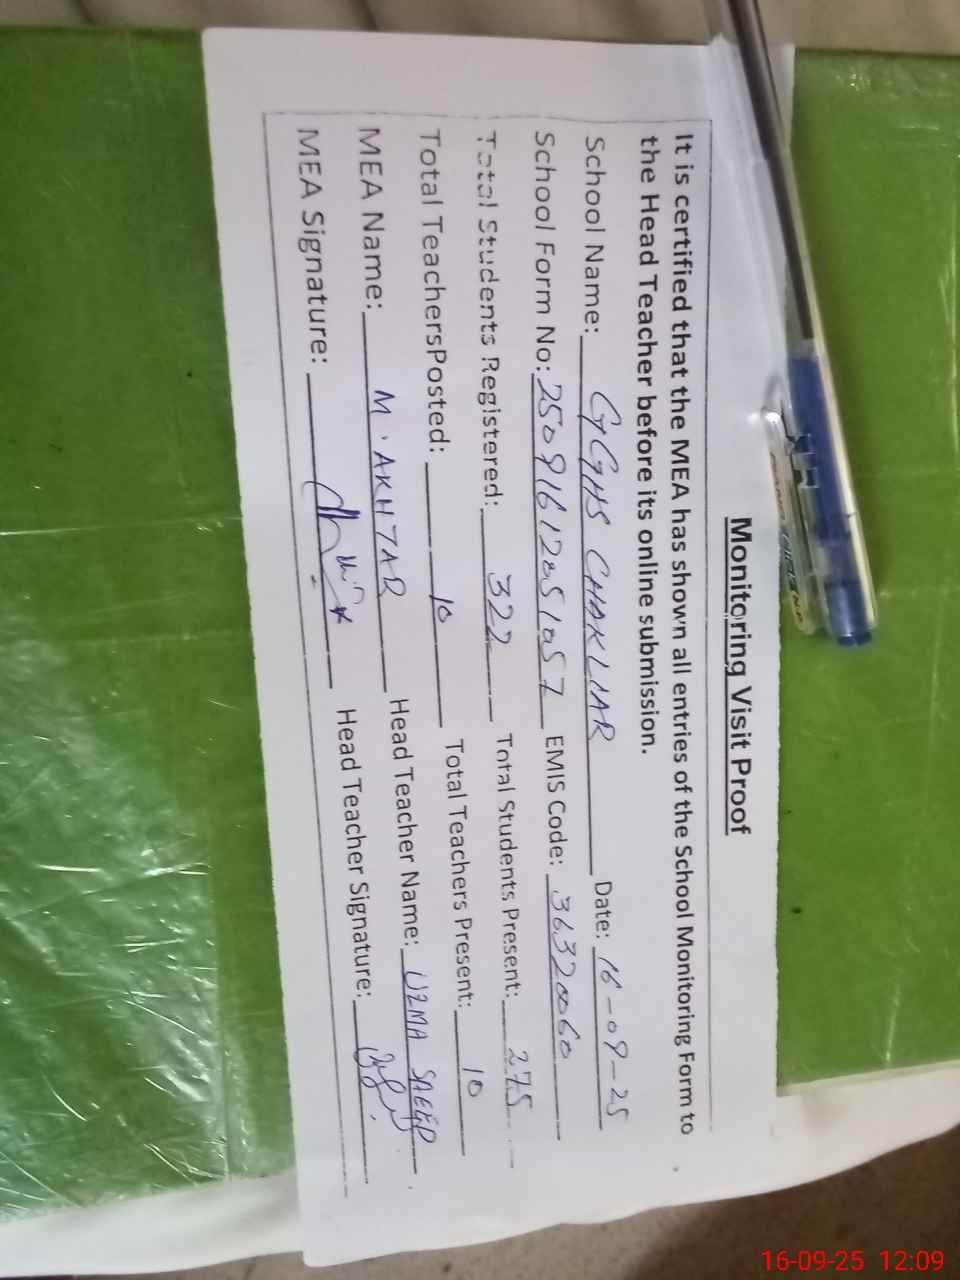 Monitoring Visit Proof
It is certified that the MEA has shown all entries of the School Monitoring Form to
the Head Teacher before its online submission.
School Name: GGHS CHAKLIAR Date: 16-09-25
School Form No: 25091612051057 EMIS Code: 36320060
Total Students Registered: 322 Total Students Present: 275
Total TeachersPosted: 10 Total Teachers Present: 10
MEA Name: M. AKHTAR Head Teacher Name: UZMA SAEED
MEA Signature: Head Teacher Signature:
16-09-25 12:09